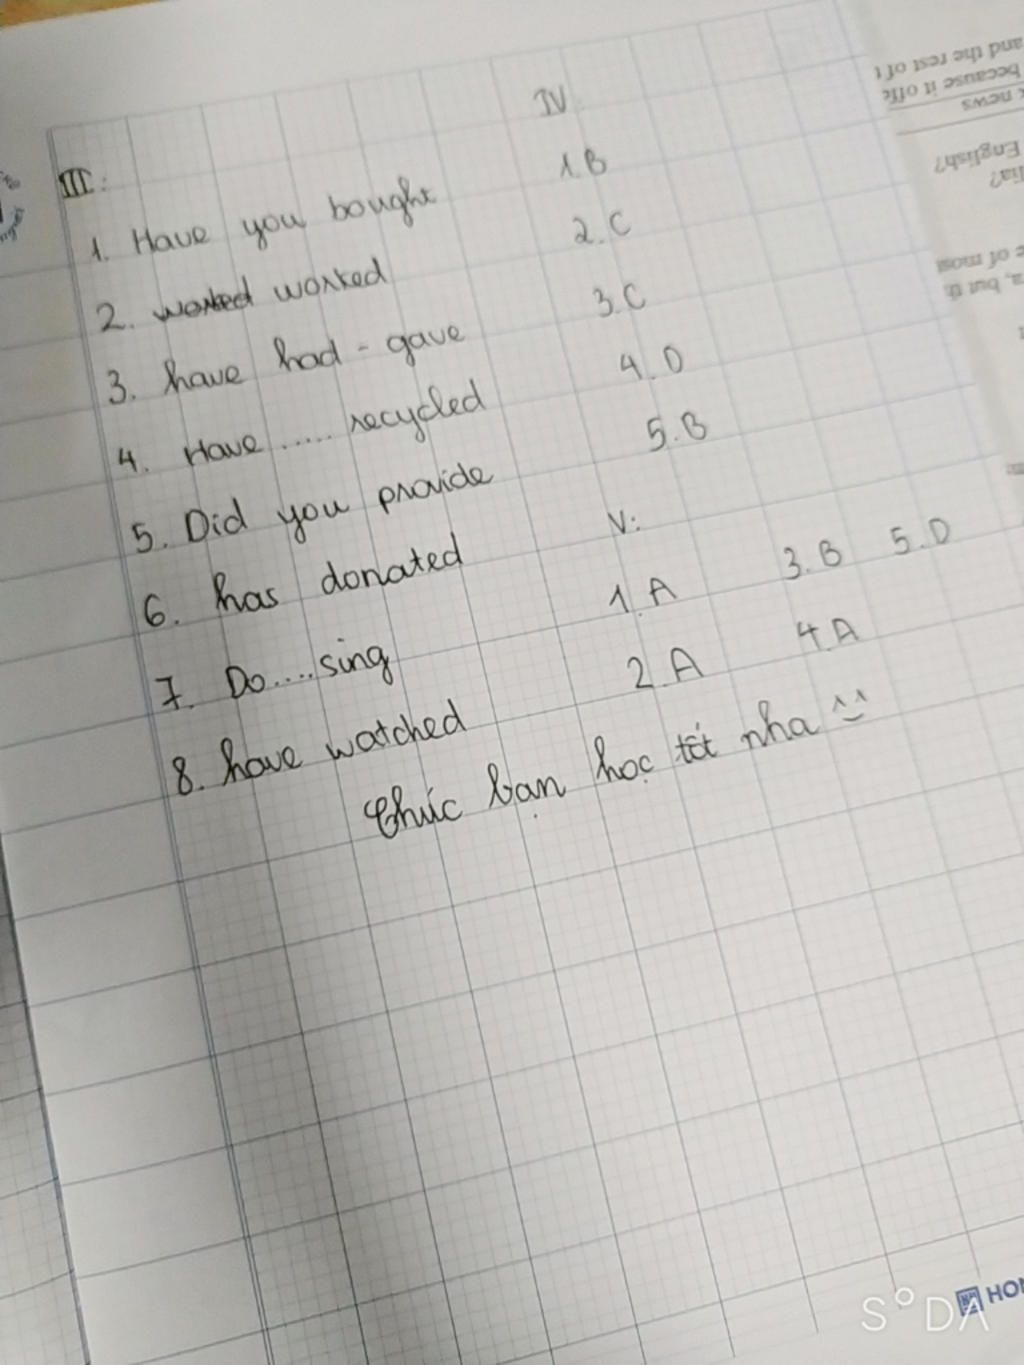 III:
1. Have you bought
2. worked worked
3. have had - gave
4. Have ..... recycled
5. Did you provide
6. has donated
7. Do .... sing
8. have watched
IV
1.B
2.C
3.C
4.D
5.B
V:
1.A 3.B 5.D
2.A 4.A
Chúc bạn học tốt nha ^^
and the rest of t
because it offe
news
English?
lia?
of most
a, but th
S°DA
HON